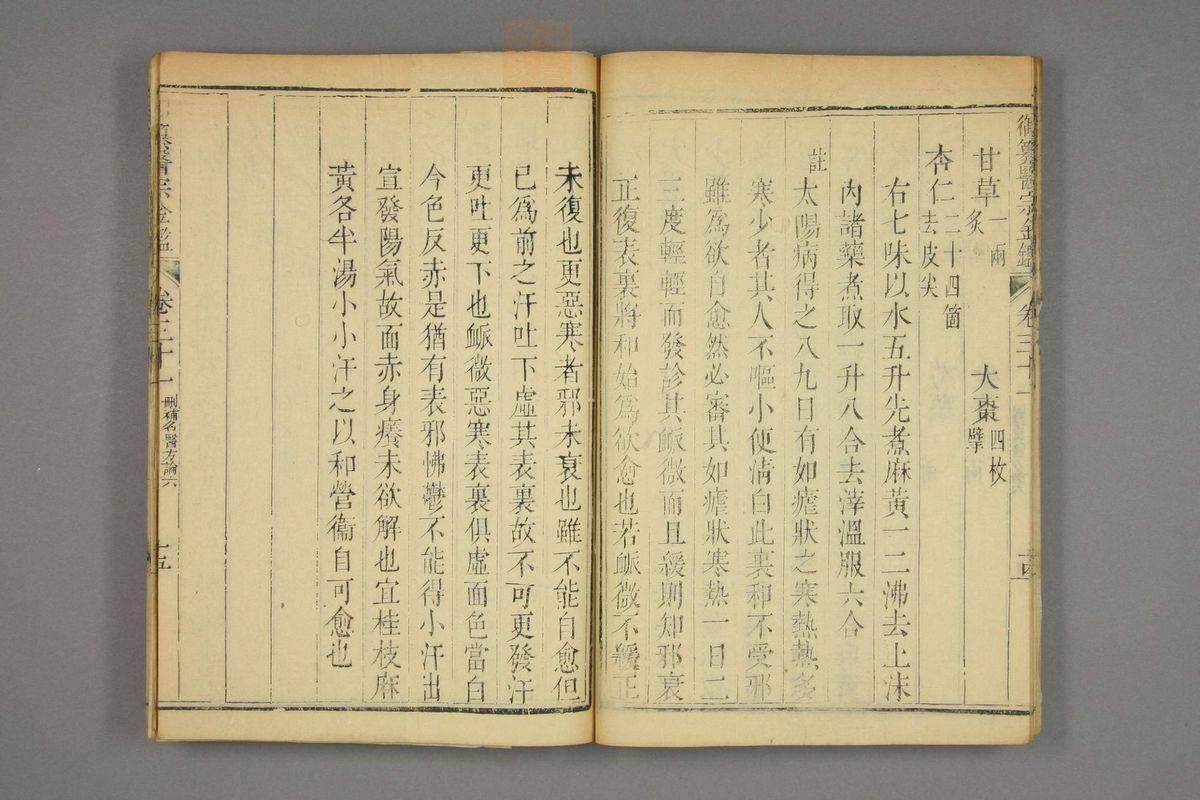 御纂醫宗金鑑 卷三十一
甘草一兩炙 大棗四枚擘
杏仁二十四箇去皮尖
右七味以水五升先煮麻黃一二沸去上沫
內諸藥煮取一升八合去滓溫服六合
註 太陽病得之八九日有如瘧狀之寒熱熱多
寒少者其人不嘔小便清白此裏和不受邪
雖爲欲自愈然必審其如瘧狀寒熱一日二
三度輕輕而發診其脈微而且緩則知邪衰
正復表裏將和始爲欲愈也若脈微不緩正
未復也更惡寒者邪未衰也雖不能自愈但
已爲前之汗吐下虛其表裏故不可更發汗
更吐更下也脈微惡寒表裏俱虛面色當白
今色反赤是猶有表邪怫鬱不能得小汗出
宣發陽氣故面赤身癢未欲解也宜桂枝麻
黃各半湯小小汗之以和營衞自可愈也
纂醫宗金鑑 卷三十一 刪補名醫方論六 十五